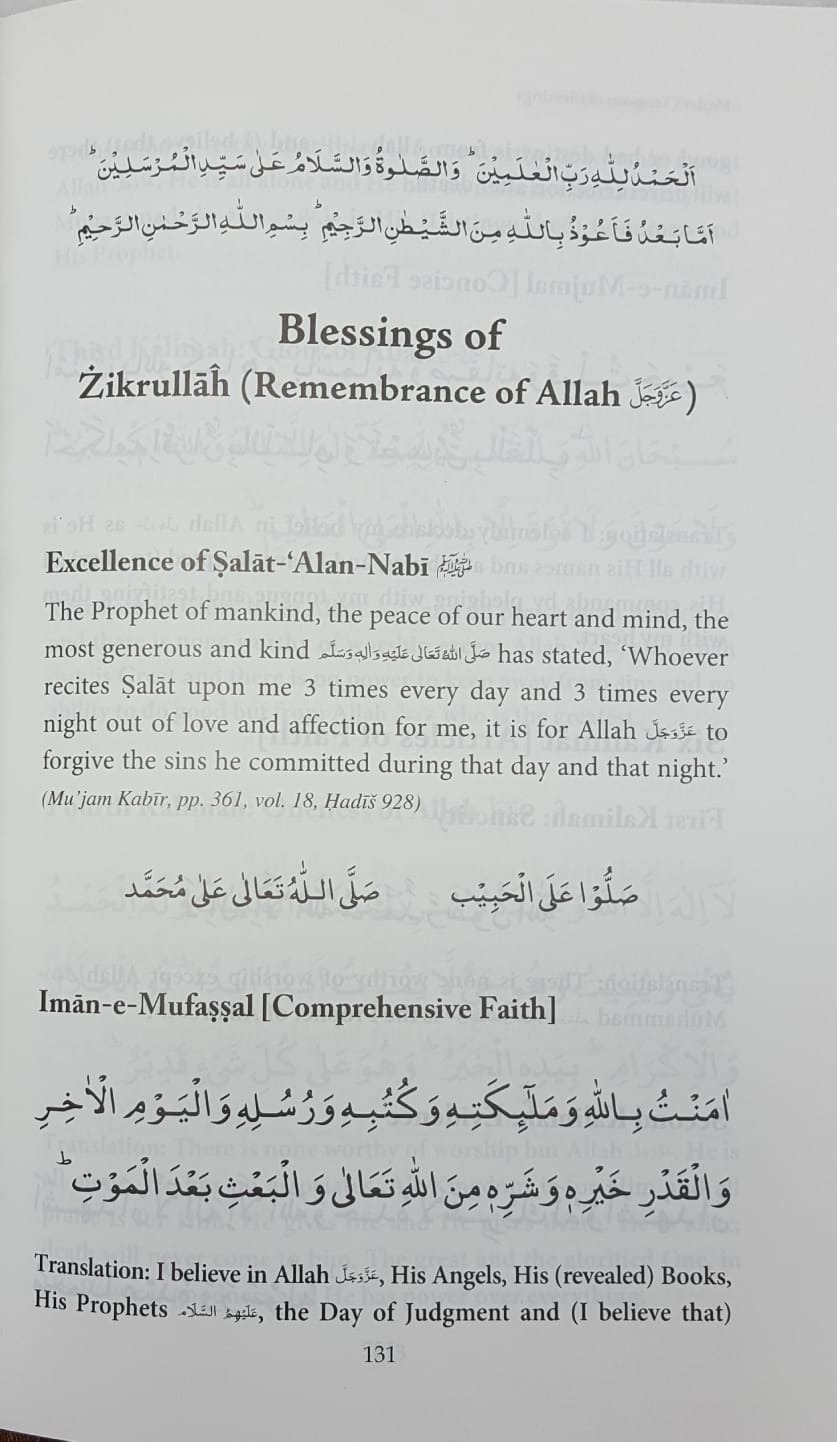 اَلْحَمْدُ لِلّٰهِ رَبِّ الْعٰلَمِيْنَ ؕ وَالصَّلٰوةُ وَالسَّلَامُ عَلٰى سَيِّدِ الْمُرْسَلِيْنَ ؕ
اَمَّا بَعْدُ فَاَعُوْذُ بِاللّٰهِ مِنَ الشَّيْطٰنِ الرَّجِيْمِ ؕ بِسْمِ اللّٰهِ الرَّحْمٰنِ الرَّحِيْمِ ؕ
Blessings of
Żikrullāĥ (Remembrance of Allah عَزَّوَجَلَّ)
Excellence of Ṣalāt-‘Alan-Nabī ﷺ
The Prophet of mankind, the peace of our heart and mind, the
most generous and kind صَلَّى اللهُ تَعَالٰى عَلَيْهِ وَاٰلِهٖ وَسَلَّم has stated, ‘Whoever
recites Ṣalāt upon me 3 times every day and 3 times every
night out of love and affection for me, it is for Allah عَزَّوَجَلَّ to
forgive the sins he committed during that day and that night.’
(Mu’jam Kabīr, pp. 361, vol. 18, Ḥadīš 928)
صَلُّوْا عَلَى الْحَبِيْب صَلَّى اللّٰهُ تَعَالٰى عَلٰى مُحَمَّد
Imān-e-Mufaṣṣal [Comprehensive Faith]
اٰمَنْتُ بِاللّٰهِ وَمَلٰٓئِكَتِهٖ وَكُتُبِهٖ وَرُسُلِهٖ وَالْيَوْمِ الْاٰخِرِ
وَالْقَدْرِ خَيْرِهٖ وَشَرِّهٖ مِنَ اللّٰهِ تَعَالٰى وَالْبَعْثِ بَعْدَ الْمَوْتِ ؕ
Translation: I believe in Allah عَزَّوَجَلَّ, His Angels, His (revealed) Books,
His Prophets عَلَيْهِمُ السَّلَام, the Day of Judgment and (I believe that)
131